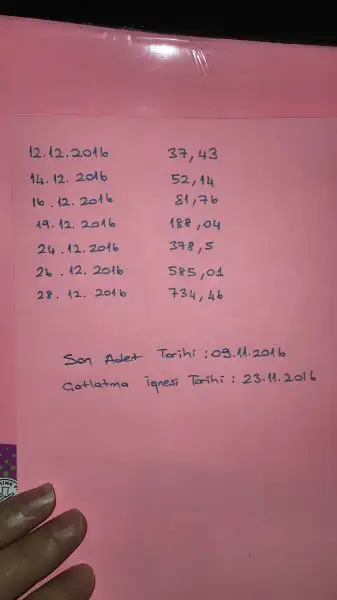 12.12.2016 37,43
14.12.2016 52,14
16.12.2016 81,76
19.12.2016 188,04
24.12.2016 378,5
26.12.2016 585,01
28.12.2016 734,46
Son Adet Tarihi : 09.11.2016
Çatlatma iğnesi Tarihi : 23.11.2016